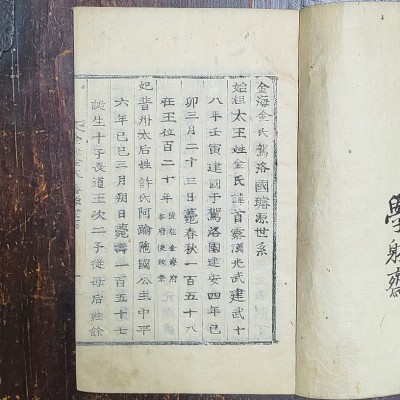 金海金氏駕洛國璿源世系
始祖太王姓金氏諱首露漢光武建武十
八年壬寅建國于駕洛國建安四年己
卯三月二十三日薨春秋一百五十八
在王位百二十年
陵在金海府
本府使致祭
妃普州太后姓許氏阿踰陁國公主中平
六年己巳三月朔日薨壽一百五十七
誕生十子長道王次二子從母后姓餘
學 齋